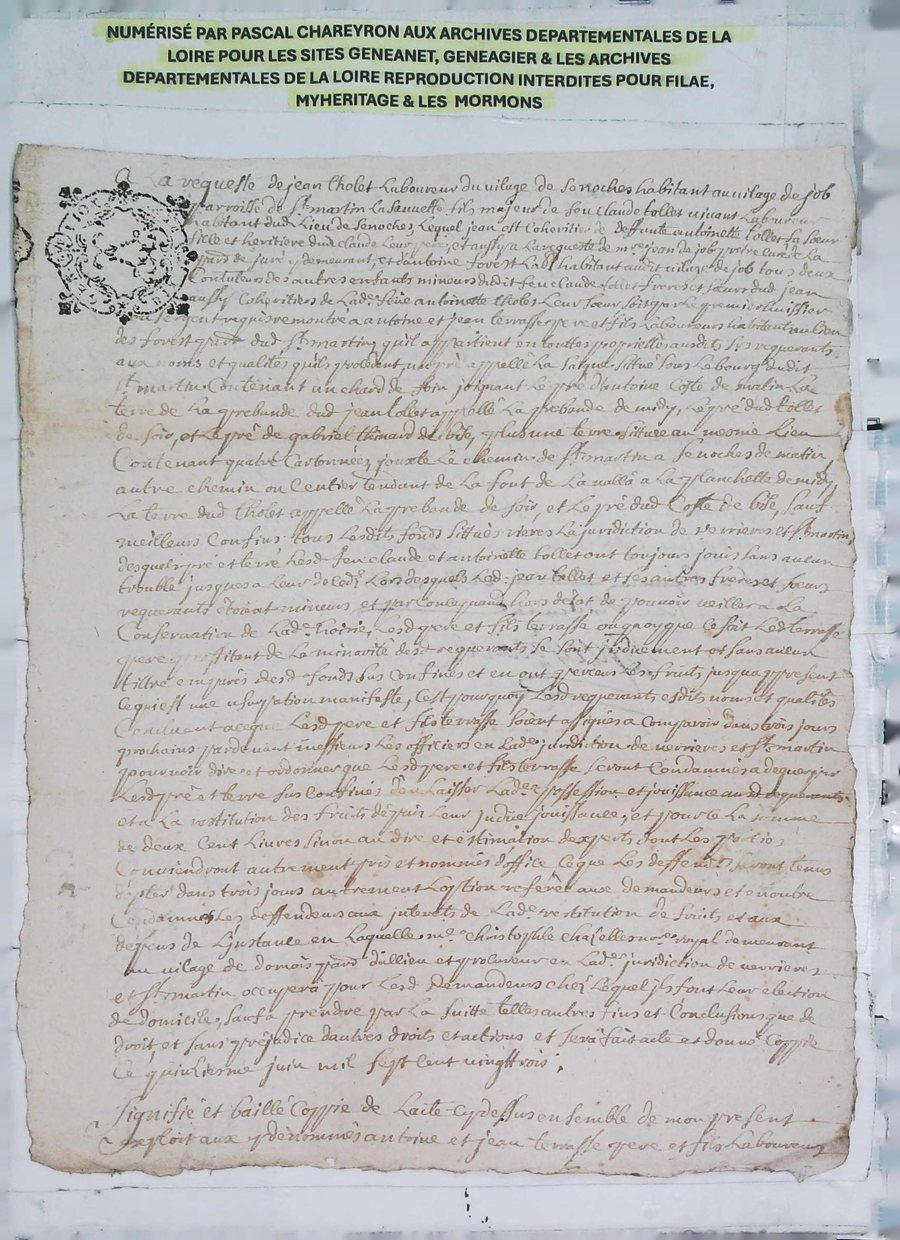 NUMÉRISÉ PAR PASCAL CHAREYRON AUX ARCHIVES DEPARTEMENTALES DE LA
LOIRE POUR LES SITES GENEANET, GENEAGIER & LES ARCHIVES
DEPARTEMENTALES DE LA LOIRE REPRODUCTION INTERDITES POUR FILAE,
MYHERITAGE & LES MORMONS
A La requeste de jean tholet Laboureur du vilage de Senoches habitant au vilage de job
parroisse de St martin La Sauuette fils majeur de feu Claude tollet vivant Laboureur
habitant dud Lieu de Senoches, Lequel jean est Coheritier de deffunte antoinette tollet sa Sœur
fille et heritiere dud Claude Leur pere, et aussy a La requeste de mre jean de job pretre curé de La
parr de juré y demeurant, et d'antoine forest Labr habitant audit vilage de job tous deux
Contuteurs des autres enfants mineurs dudit feu Claude tollet freres et sœurs dud jean
aussy Coheritiers de Lade feüe antoinette tholet Leur sœur soit par Le premier huissier
ou sergent requis remontré a antoine et jean terrasse pere et fils Laboureurs habitant au Lieu
des forest parr dud St martin, qu'il appartient en touttes proprietés auxdits srs requerants
aux noms et qualités qu'ils procedent, un pré appellé La situé sous Le bourg dudit
St martin Contenant un chard de foin joignant Le pré d'antoine Coste de matin La
terre de La prebande dud jean tollet appellé La prebande de midy, Le pré dud tollet
de soir, et Le pré de gabriel thinard de bise, plus une terre sittuée au mesme Lieu
Contenant quatre Cartonnées jouxte Le chemin de St martin a Senoches de matin
autre chemin ou Centier tendant de La font de La a La planchette de midy
La terre dud tholet appellé La prebande de soir, et Le pré dud Coste de bise, sauf
meilleurs Confins tous Lesdits fonds sittués rieres La juridiction de verrieres et St martin
desquels pré et terre Lesd feu claude et antoinette tollet ont toujours jouis sans aucun
trouble jusques a Leur decedz Lors desquels Led jean tollet et ses autres freres et sœurs
requerants étoient mineurs et par Consequand hors d'état de pouvoir veiller a La
Conservation de Lade hoirie, Lesd pere et fils terrasse ou quoy que ce soit Led terrasse
pere proffitant de La minorité desd requerants se sont induement et sans aucun
tiltre emparés desd fonds sus Confinés et en ont perceus Les fruits jusqu'a present
Ce qui est une usurpation manifeste, C'est pourquoy Lesd requerants esdits noms et qualités
Concluent a ce que Lesd pere et fils terrasse soient assignés a Comparoir dans trois jours
prochains pardevant messieurs Les officiers en Lade juridiction de verrieres et St martin
pour voir dire et ordonner que Lesd pere et fils terrasse seront Condamnés a deguerpir
Lesd pré et terre sus Confinés d'en Laisser Lade possession et jouissance auxd requerants
et a La restitution des fruits depuis Leur indue jouissance, et pour ce La somme
de deux Cent Livres sinon au dire et estimation d'experts dont Les parties
Conviendront autrement pris et nommés d'office Ce que Les deffendeurs seront tenus
d'opter dans trois jours autrement Loption referée aux demandeurs et en outre
Condamnés Les deffendeurs aux interets de Lade restitution de fruits et aux
depens de L'instance en Laquelle me Christophle Chazelles nore royal demeurant
au vilage de domois parr d'allieu et procureur en Lade juridiction de verrieres
et St martin occupera pour Lesd demandeurs chez Lequel ils font Leur election
de domicile, sauf a prendre par La suitte telles autres fins et Conclusions que de
droit, et sans préjudice d'autres droits et actions et sera fait acte et donné Coppie
Ce quinziesme juin mil sept cent vingt trois.
Signifié et baillé Coppie de Lacte cy dessus ensemble de mon present
exploit aux y dénommés antoine et jean terrasse pere et fils Laboureurs